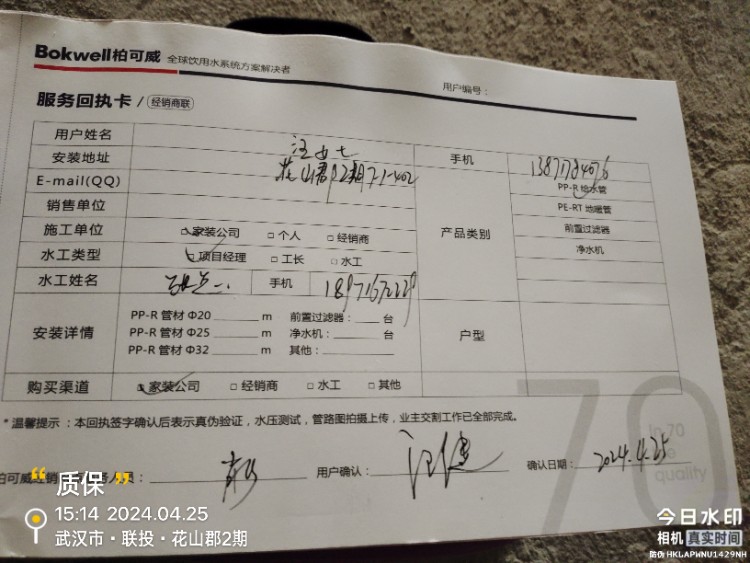 Bokwell柏可威 全球饮用水系统方案解决者
用户编号：
服务回执卡 / 经销商联
用户姓名 汪女士
安装地址 花山郡2期71-402 手机
E-mail(QQ)
销售单位
施工单位 □家装公司 □个人 □经销商
水工类型 □项目经理 □工长 □水工
产品类别
PP-R 给水管
PE-RT 地暖管
前置过滤器
净水机
水工姓名 手机
安装详情
PP-R 管材 Φ20 m 前置过滤器： 台
PP-R 管材 Φ25 m 净水机： 台
PP-R 管材 Φ32 m 其他：
户型
购买渠道 □家装公司 □经销商 □水工 □其他
* 温馨提示：本回执签字确认后表示真伪验证，水压测试，管路图拍摄上传，业主交割工作已全部完成。
70
quality
柏可威经销 人员： 用户确认： 汪健 确认日期： 2024.4.25
“质保”
15:14 2024.04.25
武汉市·联投·花山郡2期
今日水印
相机 真实时间
防伪 HKLAPWNU1429NH